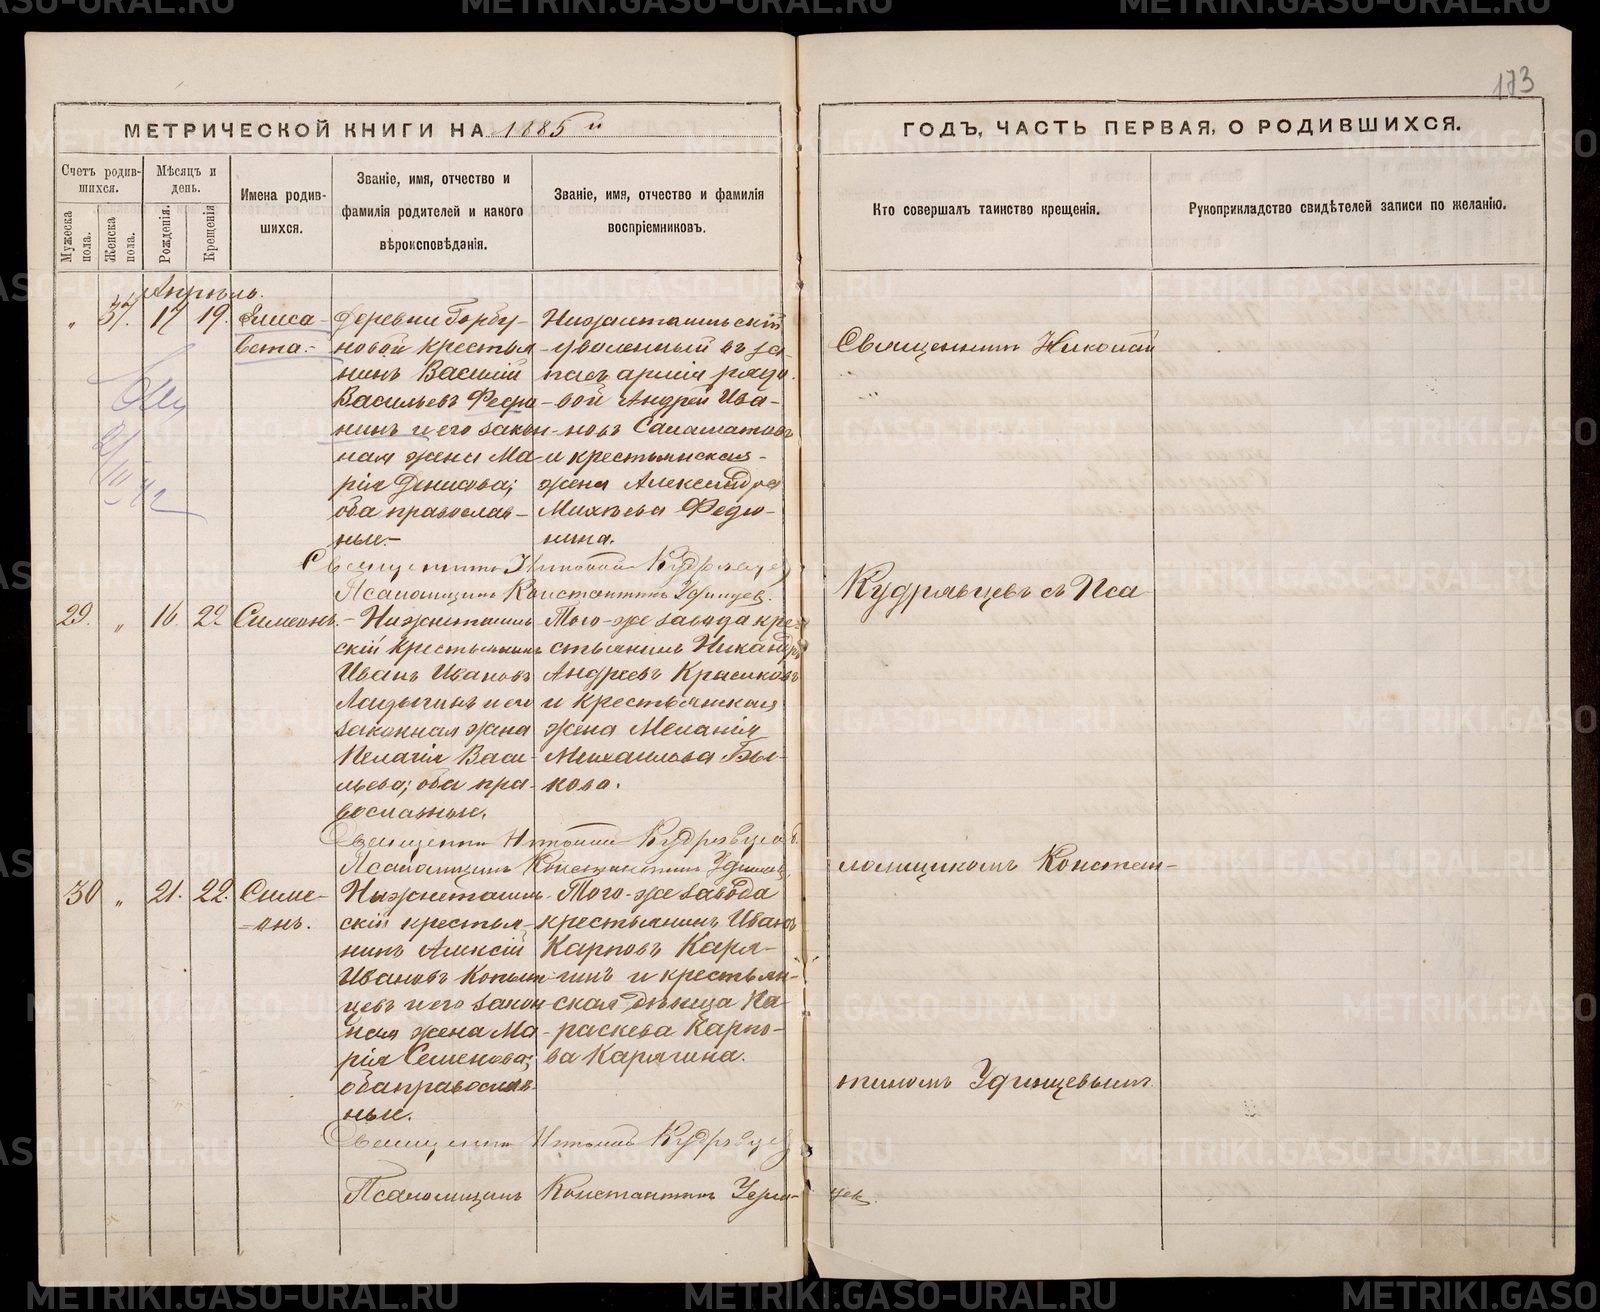 173
МЕТРИЧЕСКОЙ КНИГИ НА 1885 й
ГОДЪ, ЧАСТЬ ПЕРВАЯ, О РОДИВШИХСЯ.
Счетъ родившихся.
Мужеска пола.
Женска пола.
Мѣсяцъ и день.
Рожденія.
Крещенія
Имена родившихся.
Званіе, имя, отчество и фамилія родителей и какого вѣроисповѣданія.
Званіе, имя, отчество и фамилія воспріемниковъ.
Кто совершалъ таинство крещенія.
Рукоприкладство свидѣтелей записи по желанію.
Апрѣль.
„ 37. 17 19.
Елиса-
вета.-
деревни Горбу-
новой крестья-
нинъ Василій
Васильевъ Федю-
нинъ и его закон-
ная жена Ма-
рія Денисова;
оба православ-
ные.-
Нижнетагильскій
уволенный въ за-
пасъ арміи рядо-
вой Андрей Ива-
новъ Саламатовъ
и крестьянская
жена Александра
Михѣева Федю-
нина.
Священникъ Николай Кудрявцев
Псаломщикъ Константинъ Удинцев.
29. „ 16 22
Симеонъ.
Нижнетагиль-
скій крестьянинъ
Иванъ Ивановъ
Ладыгинъ и его
законная жена
Пелагія Васи-
льева; оба пра-
вославные.
Того-же завода кре-
стьянинъ Никандръ
Андреевъ Красиковъ
и крестьянская
жена Меланія
Михаилова Бы-
кова.
Священникъ Николай Кудрявцевъ
Псаломщикъ Константинъ Удинцев
30 „ 21. 22.
Симе-
-онъ.
Нижнетагиль-
скій крестья-
нинъ Алексій
Ивановъ Копыт-
цевъ и его закон-
ная жена Ма-
рія Семенова;
оба православ-
ные.
Того-же завода
крестьянинъ Иванъ
Карповъ Каря-
гинъ и крестьян-
ская дѣвица Па-
раскева Карпо-
ва Карягина.
Священникъ Николай Кудрявцев
Псаломщикъ Константинъ Удинцев
Священникъ Николай
Кудрявцевъ съ Пса
ломщикомъ Констан-
тиномъ Удинцевымъ
METRIKI.GASO-URAL.RU